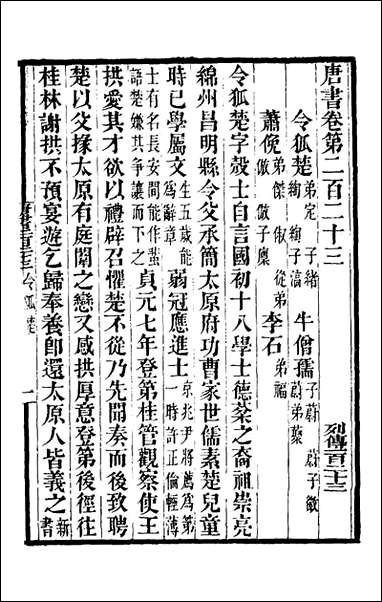 唐書卷第二百二十三 列傳百二十三
令狐楚 弟定 子緒 綯 綯子滈 牛僧孺 子蔚 蔚子徽 蔚弟藂
蕭俛 弟傑 俶 從弟 倣 倣子廩 李石 弟福
令狐楚字殼士自言國初十八學士德棻之裔祖崇亮
綿州昌明縣令父承簡太原府功曹家世儒素楚兒童
時已學屬文生五歲能爲辭章弱冠應進士京兆尹將薦爲第一時許正倫輕薄
士有名長安間能作蜚語楚嫌其爭讓而下之貞元七年登第桂管觀察使王
拱愛其才欲以禮辟召懼楚不從乃先聞奏而後致聘
楚以父掾太原有庭闈之戀又感拱厚意登第後徑往
桂林謝拱不預宴遊乞歸奉養卽還太原人皆義之新書
令狐楚 一